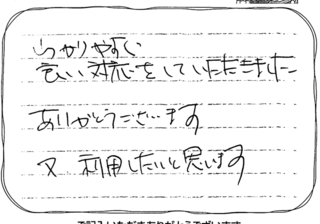 わかりやすい
良い対応をしていただきました
ありがとうございます
又 利用したいと思います